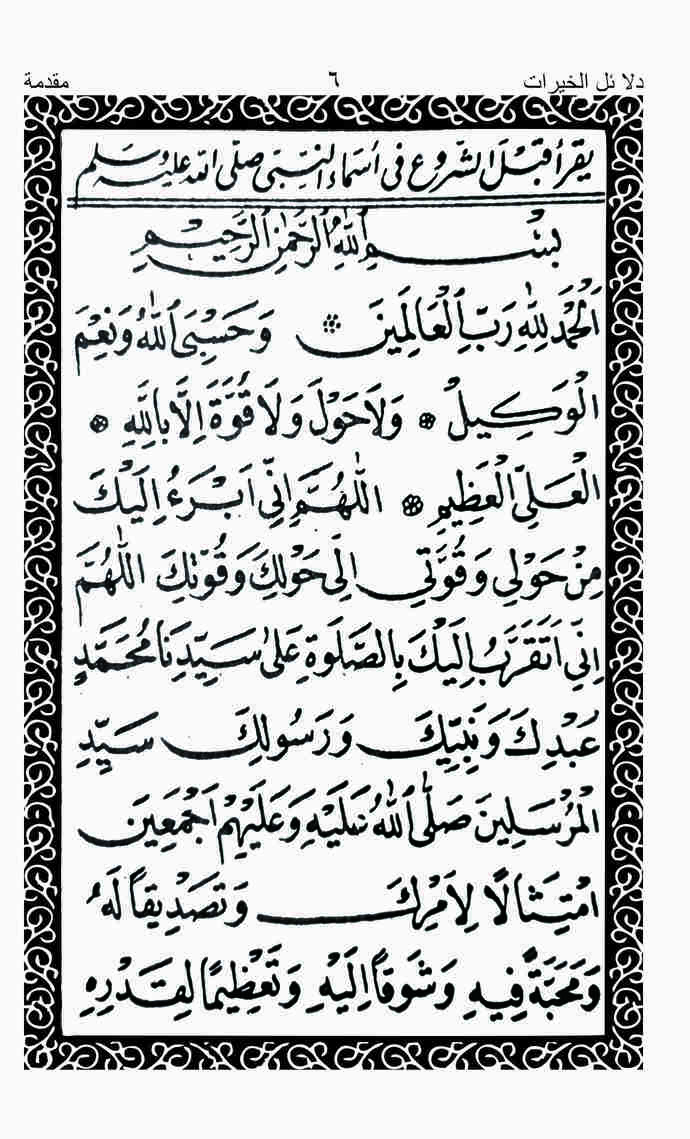 دلا ئل الخيرات ٦ مقدمة
يقرأ قبل الشروع في أسماء النبي صلى الله عليه وسلم
بِسْمِ اللّٰهِ الرَّحْمٰنِ الرَّحِيمِ
اَلْحَمْدُ لِلّٰهِ رَبِّ الْعَالَمِينَ ❁ وَحَسْبِيَ اللّٰهُ وَنِعْمَ
الْوَكِيلُ ❁ وَلَا حَوْلَ وَلَا قُوَّةَ اِلَّا بِاللّٰهِ ❁
الْعَلِيِّ الْعَظِيمِ ❁ اَللّٰهُمَّ اِنِّي اَبْرَءُ اِلَيْكَ
مِنْ حَوْلِي وَقُوَّتِي اِلَى حَوْلِكَ وَقُوَّتِكَ اَللّٰهُمَّ
اِنِّي اَتَقَرَّبُ اِلَيْكَ بِالصَّلَوةِ عَلَى سَيِّدِنَا مُحَمَّدٍ
عَبْدِكَ وَنَبِيِّكَ وَرَسُولِكَ سَيِّدِ
الْمُرْسَلِينَ صَلَّى اللّٰهُ عَلَيْهِ وَعَلَيْهِمْ اَجْمَعِينَ
امْتِثَالًا لِاَمْرِكَ وَتَصْدِيقًا لَهُ
وَمَحَبَّةً فِيهِ وَشَوْقًا اِلَيْهِ وَتَعْظِيمًا لِقَدْرِهِ